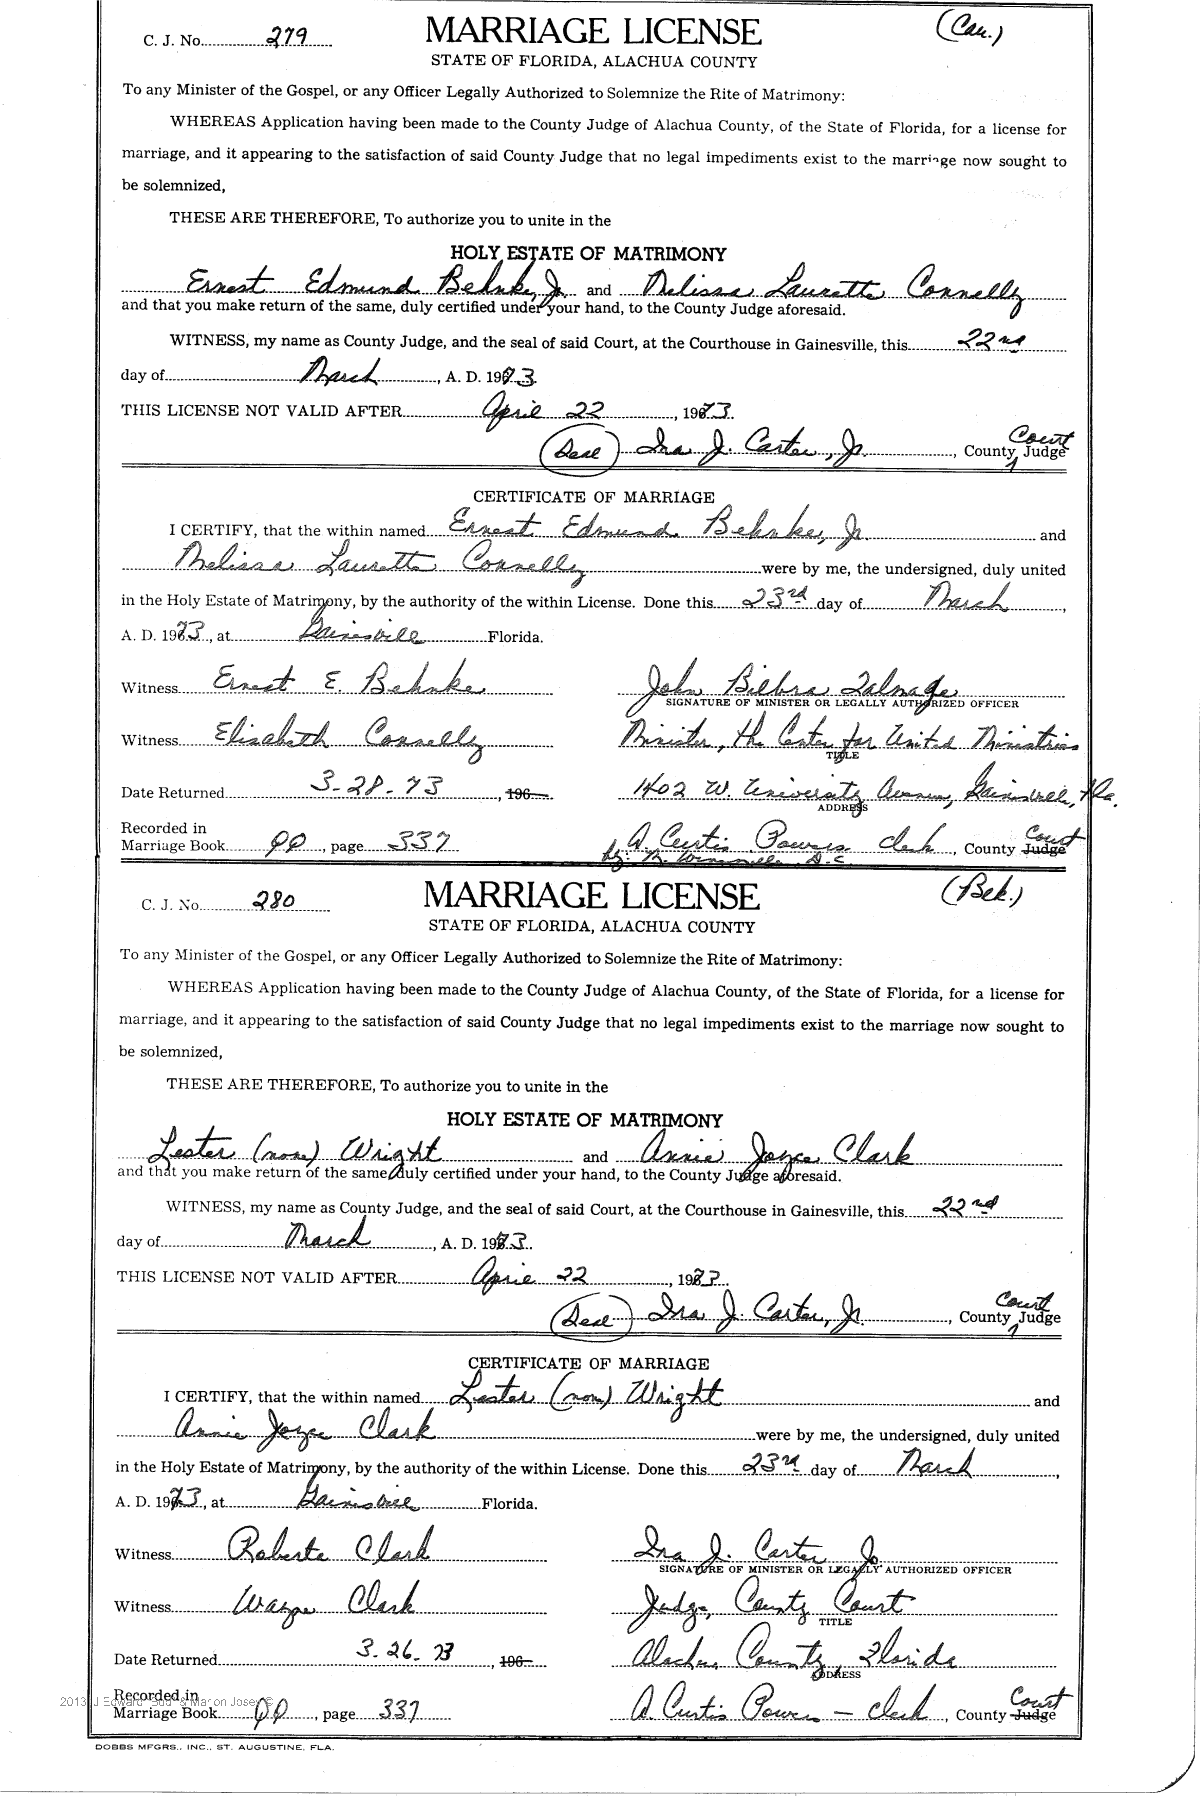 C. J. No. 279 MARRIAGE LICENSE (Cau.)
STATE OF FLORIDA, ALACHUA COUNTY
To any Minister of the Gospel, or any Officer Legally Authorized to Solemnize the Rite of Matrimony:
WHEREAS Application having been made to the County Judge of Alachua County, of the State of Florida, for a license for
marriage, and it appearing to the satisfaction of said County Judge that no legal impediments exist to the marriage now sought to
be solemnized,
THESE ARE THEREFORE, To authorize you to unite in the
HOLY ESTATE OF MATRIMONY
Ernest Edmund Behnke, Jr. and Melissa Lauretta Connelly
and that you make return of the same, duly certified under your hand, to the County Judge aforesaid.
WITNESS, my name as County Judge, and the seal of said Court, at the Courthouse in Gainesville, this 22nd
day of March, A. D. 1973
THIS LICENSE NOT VALID AFTER April 22, 1973.
(Seal) Ira J. Carter, Jr., County Court Judge
CERTIFICATE OF MARRIAGE
I CERTIFY, that the within named Ernest Edmund Behnke, Jr. and
Melissa Lauretta Connelly were by me, the undersigned, duly united
in the Holy Estate of Matrimony, by the authority of the within License. Done this 23rd day of March,
A. D. 1973, at Gainesville Florida.
Witness Ernest E. Behnke John Bilbra Talmage
SIGNATURE OF MINISTER OR LEGALLY AUTHORIZED OFFICER
Witness Elisabeth Connelly Minister, the Center for United Ministries
TITLE
Date Returned 3-28-73, 196 1402 W. University Avenue, Gainesville, Fla.
ADDRESS
Recorded in
Marriage Book QQ, page 337 A. Curtis Powers Clerk, County Court Judge
by: D.C.
C. J. No. 280 MARRIAGE LICENSE (Bek.)
STATE OF FLORIDA, ALACHUA COUNTY
To any Minister of the Gospel, or any Officer Legally Authorized to Solemnize the Rite of Matrimony:
WHEREAS Application having been made to the County Judge of Alachua County, of the State of Florida, for a license for
marriage, and it appearing to the satisfaction of said County Judge that no legal impediments exist to the marriage now sought to
be solemnized,
THESE ARE THEREFORE, To authorize you to unite in the
HOLY ESTATE OF MATRIMONY
Lester (none) Wright and Annie Joyce Clark
and that you make return of the same duly certified under your hand, to the County Judge aforesaid.
WITNESS, my name as County Judge, and the seal of said Court, at the Courthouse in Gainesville, this 22nd
day of March, A. D. 1973.
THIS LICENSE NOT VALID AFTER April 22, 1973
(Seal) Ira J. Carter, Jr., County Court Judge
CERTIFICATE OF MARRIAGE
I CERTIFY, that the within named Lester (none) Wright and
Annie Joyce Clark were by me, the undersigned, duly united
in the Holy Estate of Matrimony, by the authority of the within License. Done this 23rd day of March,
A. D. 1973, at Gainesville Florida.
Witness Roberta Clark Ira J. Carter Jr
SIGNATURE OF MINISTER OR LEGALLY AUTHORIZED OFFICER
Witness Wayne Clark Judge, County Court
TITLE
Date Returned 3-26-73, 196 Alachua County, Florida
ADDRESS
Recorded in
Marriage Book QQ, page 337 A. Curtis Powers - Clerk, County Court Judge
DOBBS MFGRS., INC., ST. AUGUSTINE, FLA.